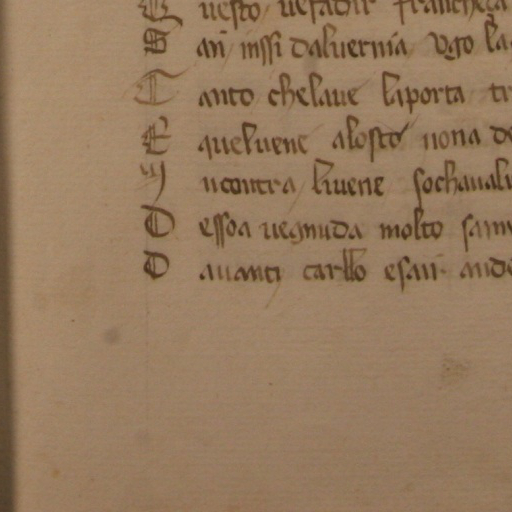 Q uesto uefadir francheça
S an inssi daluernia Vgo la
T anto chelaue laporta tr
E queluene alosto nona de
I ncontra liuene sochaual
D essoa uegnuda molto
D auanti carllo esan ande